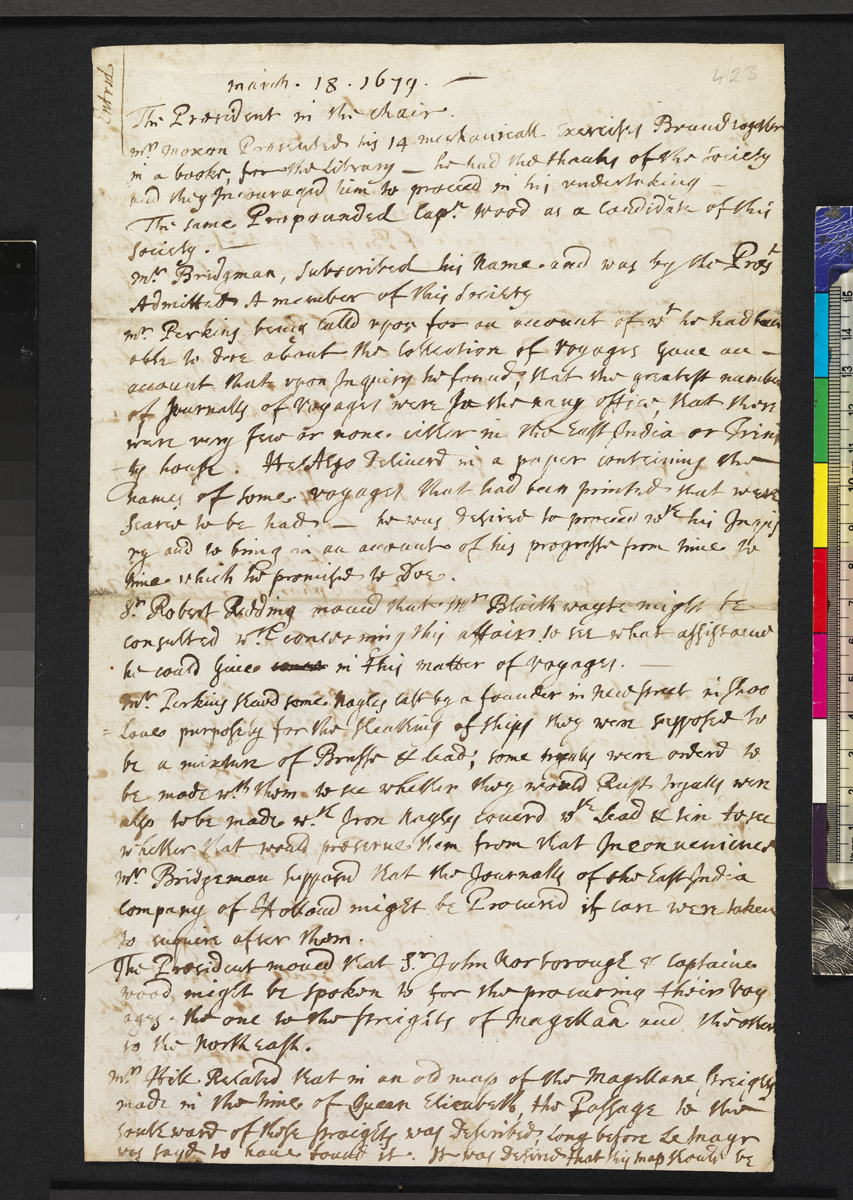 423
Entred
march . 18 . 1679 . —
The President in the chair.
mr moxon Presented his 14 mechanicall Exercises Bound together
in a booke, for the Library — he had the thanks of the Society
and they Incouraged him to proceed in his undertaking —
The same Propounded Capn wood as a Candidate of this
Society . —
mr Bridgman, Subscribed his Name and was by the Prest
Admitted A member of this Society
mr Perkins being calld upon for an account of wt he had been
able to doe about the Collection of voyages gave an —
account that upon Inquiry he found, that the greatest number
of Journalls of voyages were In the navy office, that there
were very few or none either in the East India or Trini
ty house . He Also Deliverd in a paper containing the
names of some voyages that had been printed that were
Scarce to be had — he was desired to proceed wth his Inqui
ry and to bring in an account of his progresse from time to
time which he promised to Doe .
Sr Robert Redding moved that Mr Blaithwayte might be
consulted wth concerning this affaire to see what assistance
he could Give in this matter of voyages . —
mr Perkins shewd some Nayles cast by a founder in new street in Shoo
= Lane purposely for the sheathing of ships they were supposed to
be a mixture of Brasse & lead; some tryalls were orderd to
be made wth them to see whether they would Rust tryalls were
also to be made wth Iron Nayles coverd wth lead & tin to see
whether that would preserve them from that Inconvenience
mr Bridgeman supposd that the Journalls of the East India
company of Holland might be Procured if care were taken
to enquire after them .
The President moved that Sr John Narborough & Captaine
wood might be spoken to for the procuring their voy
ages . the one to the streights of Magellan and the other
to the North East .
mr Hill Related that in an old map of the Magellane streights
made in the time of Queen Elizabeth, the Passage to the
southward of those straights was described, long before Le mayr
was sayd to have found it . It was desired that this map should be